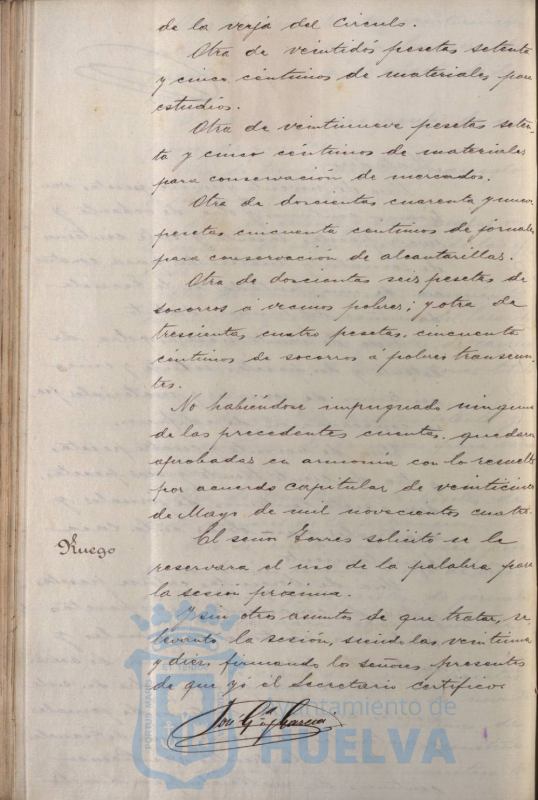 de la verja del Circulo.
Otra de veintidós pesetas setenta
y cinco céntimos de materiales para
estudios.
Otra de veintinueve pesetas seten-
ta y cinco céntimos de materiales
para conservación de mercados.
Otra de doscientas cuarenta y nueve
pesetas cincuenta céntimos de jornales
para conservación de alcantarillas.
Otra de doscientas seis pesetas de
socorros á vecinos pobres; y otra de
trescientas cuatro pesetas cincuenta
céntimos de socorros á pobres transeun-
tes.
No habiéndose impugnado ninguna
de las precedentes cuentas, quedaron
aprobadas en armonía con lo resuelto
por acuerdo capitular de veinticinco
de Mayo de mil novecientos cuatro.
Ruego
El señor Torres solicitó se le
reservara el uso de la palabra para
la sesión próxima.
Y sin otros asuntos de que tratar, se
levantó la sesión, siendo las veintiuna
y diez, firmando los señores presentes
de que yo el Secretario certifico.
Ayuntamiento de
HUELVA